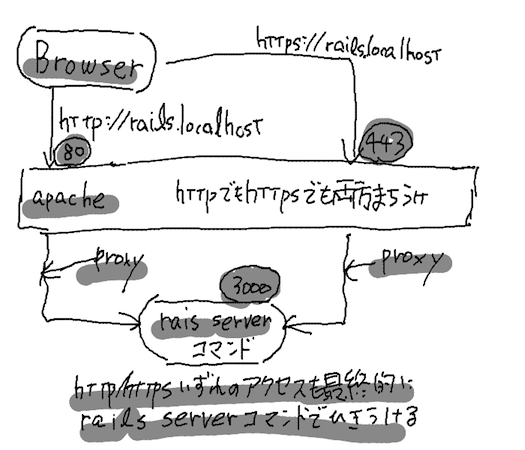 https://rails.localhost
Browser
http://rails.localhost
80
443
apache
httpでもhttpsでも両方まちうけ
proxy
proxy
3000
rais server
コマンド
http/httpsいずれのアクセスも最終的に
rails serverコマンドでひきうける